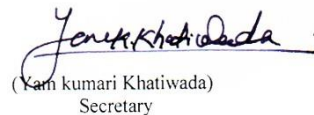 (Yam kumari Khatiwada)
Secretary